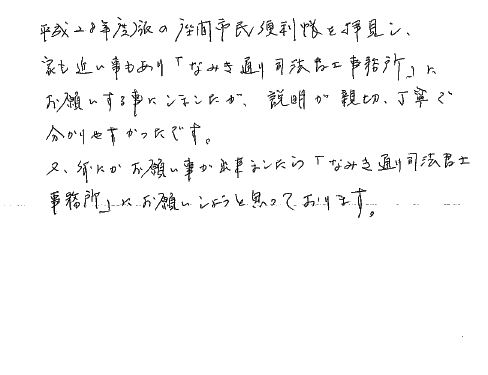 平成28年度版の座間市民便利帳を拝見し、
家も近い事もあり「なみき通り司法書士事務所」に
お願いする事にしましたが、説明が親切、丁寧で
分かりやすかったです。
又、何かお願い事が出来ましたら「なみき通り司法書士
事務所」にお願いしようと思っております。